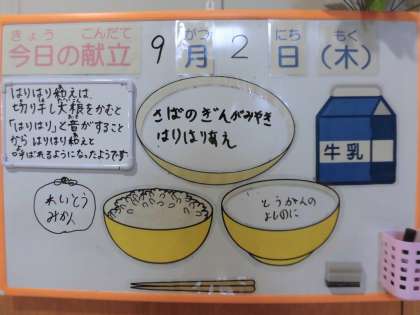 きょう こんだて
今日の献立 9 がつ 月 2 にち 日 もく (木)
はりはり和えは、
切り干し大根をかむと
「はりはり」と音がすること
から はりはり和えと
呼ばれるようになったようです
さばのぎんがみやき
はりはりあえ
牛乳
れいとう
みかん
とうがんの
よしのに